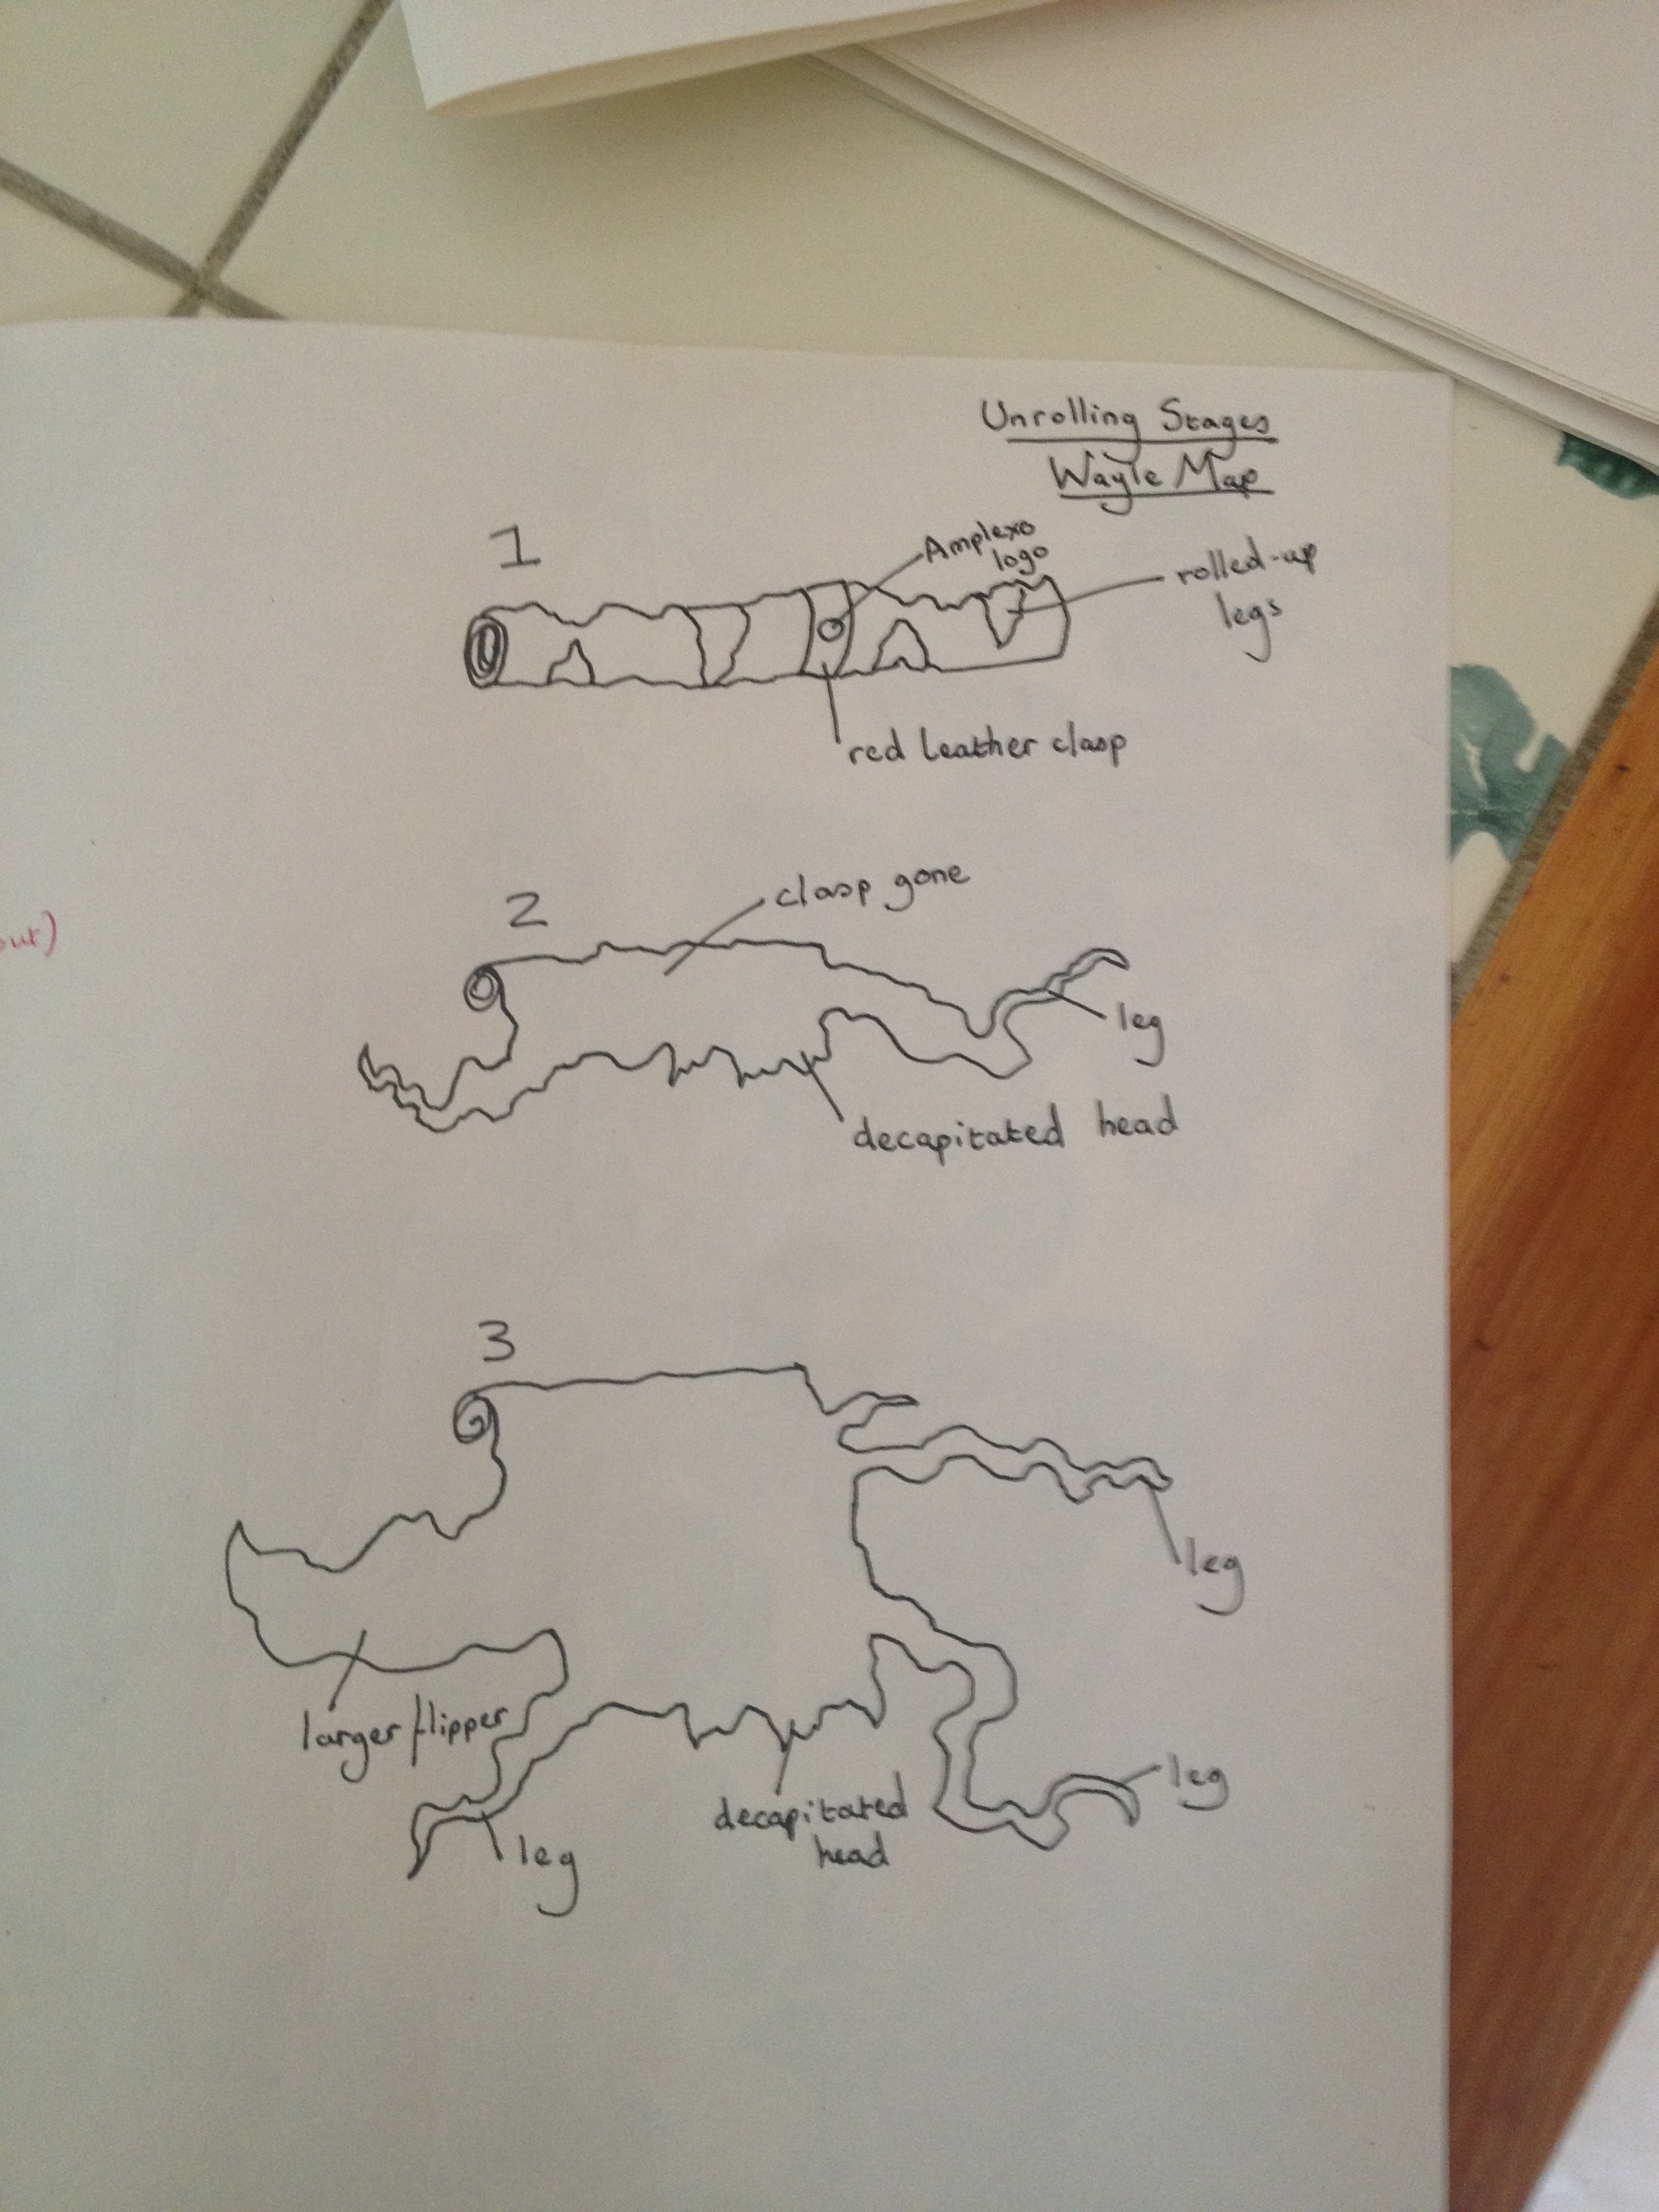 Unrolling Stages
Wayle Map
1
Amplexo
logo
rolled-up
legs
red leather clasp
out)
2
clasp gone
leg
decapitated head
3
leg
larger flipper
leg
decapitated
head
leg